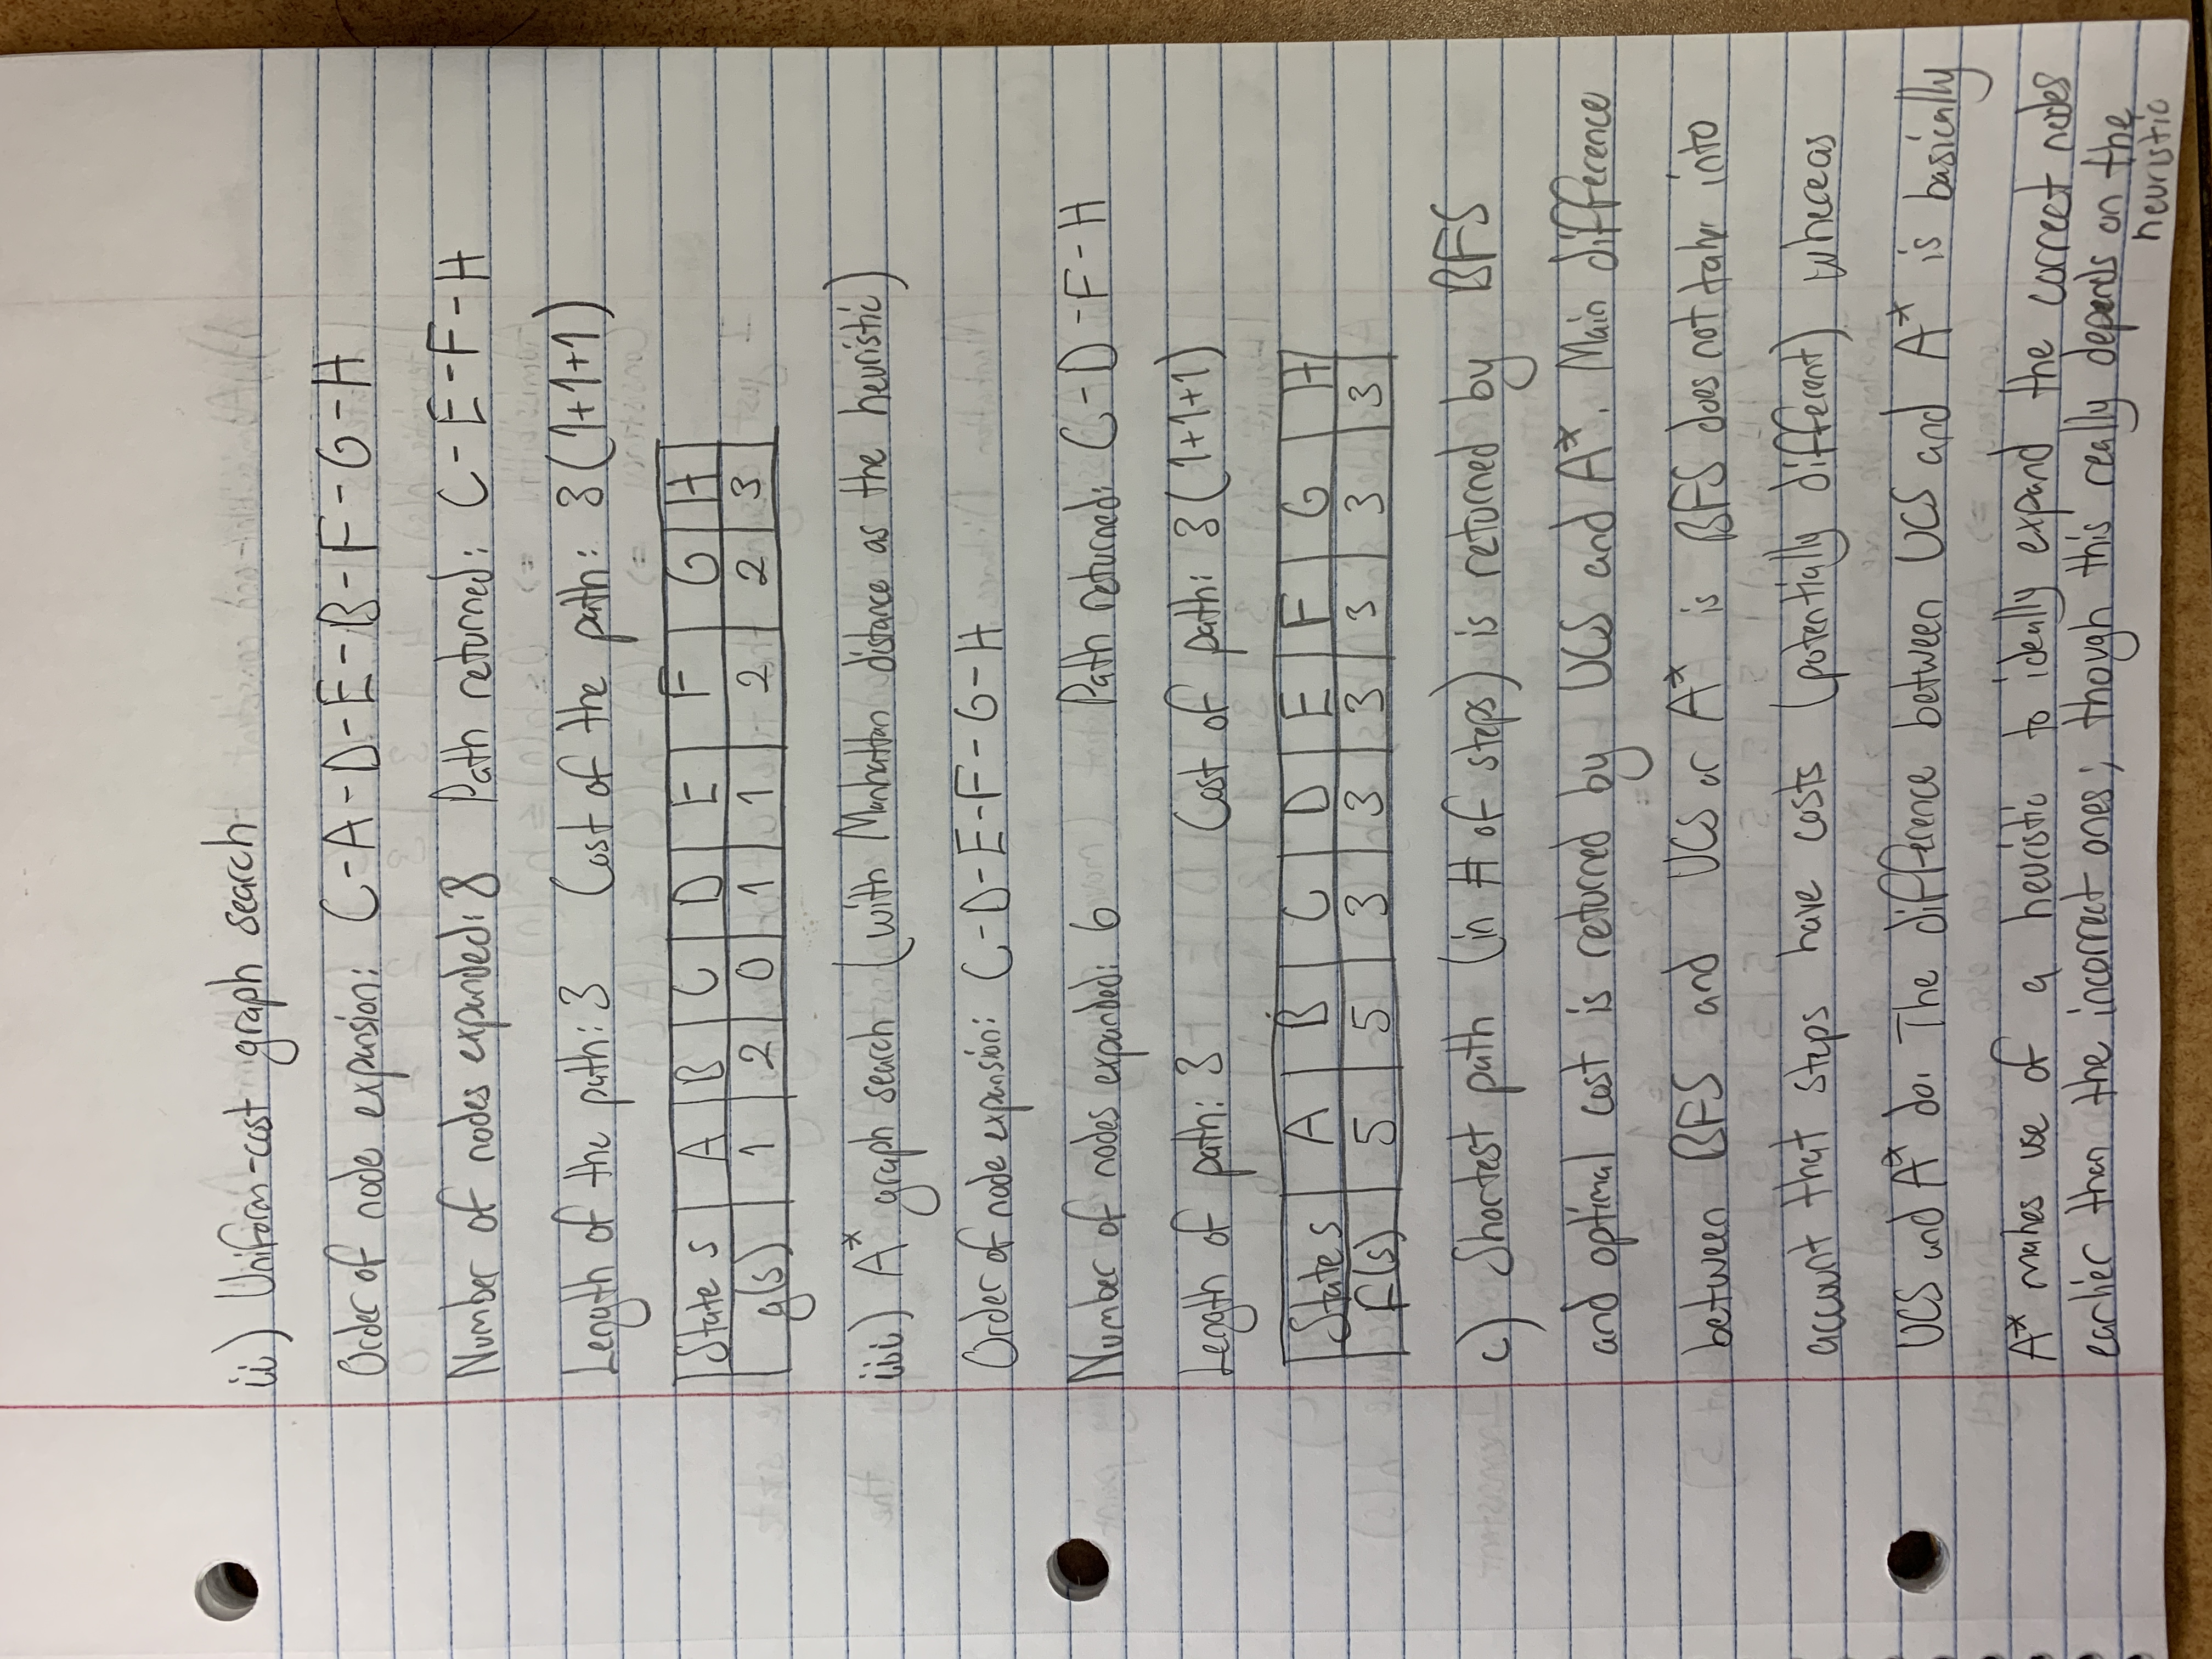 ii) Uniform-cost graph search
Order of node expansion: C-A-D-E-B-F-G-H
Number of nodes expanded: 8 Path returned: C-E-F-H
Length of the path: 3 Cost of the path: 3 (1+1+1)
State s A B C D E F G H
g(s) 1 2 0 1 1 2 2 3
iii) A* graph search (with Manhattan distance as the heuristic)
Order of node expansion: C-D-E-F-G-H
Number of nodes expanded: 6 Path returned: C-D-F-H
Length of path: 3 Cost of path: 3 (1+1+1)
State s A B C D E F G H
f(s) 5 5 3 3 3 3 3 3
c) Shortest path (in # of steps) is returned by BFS
and optimal cost is returned by UCS and A*. Main difference
between BFS and UCS or A* is BFS does not take into
account that steps have costs (potentially different) whereas
UCS and A* do. The difference between UCS and A* is basically
A* makes use of a heuristic to ideally expand the correct nodes
earlier than the incorrect ones; though this really depends on the
heuristic